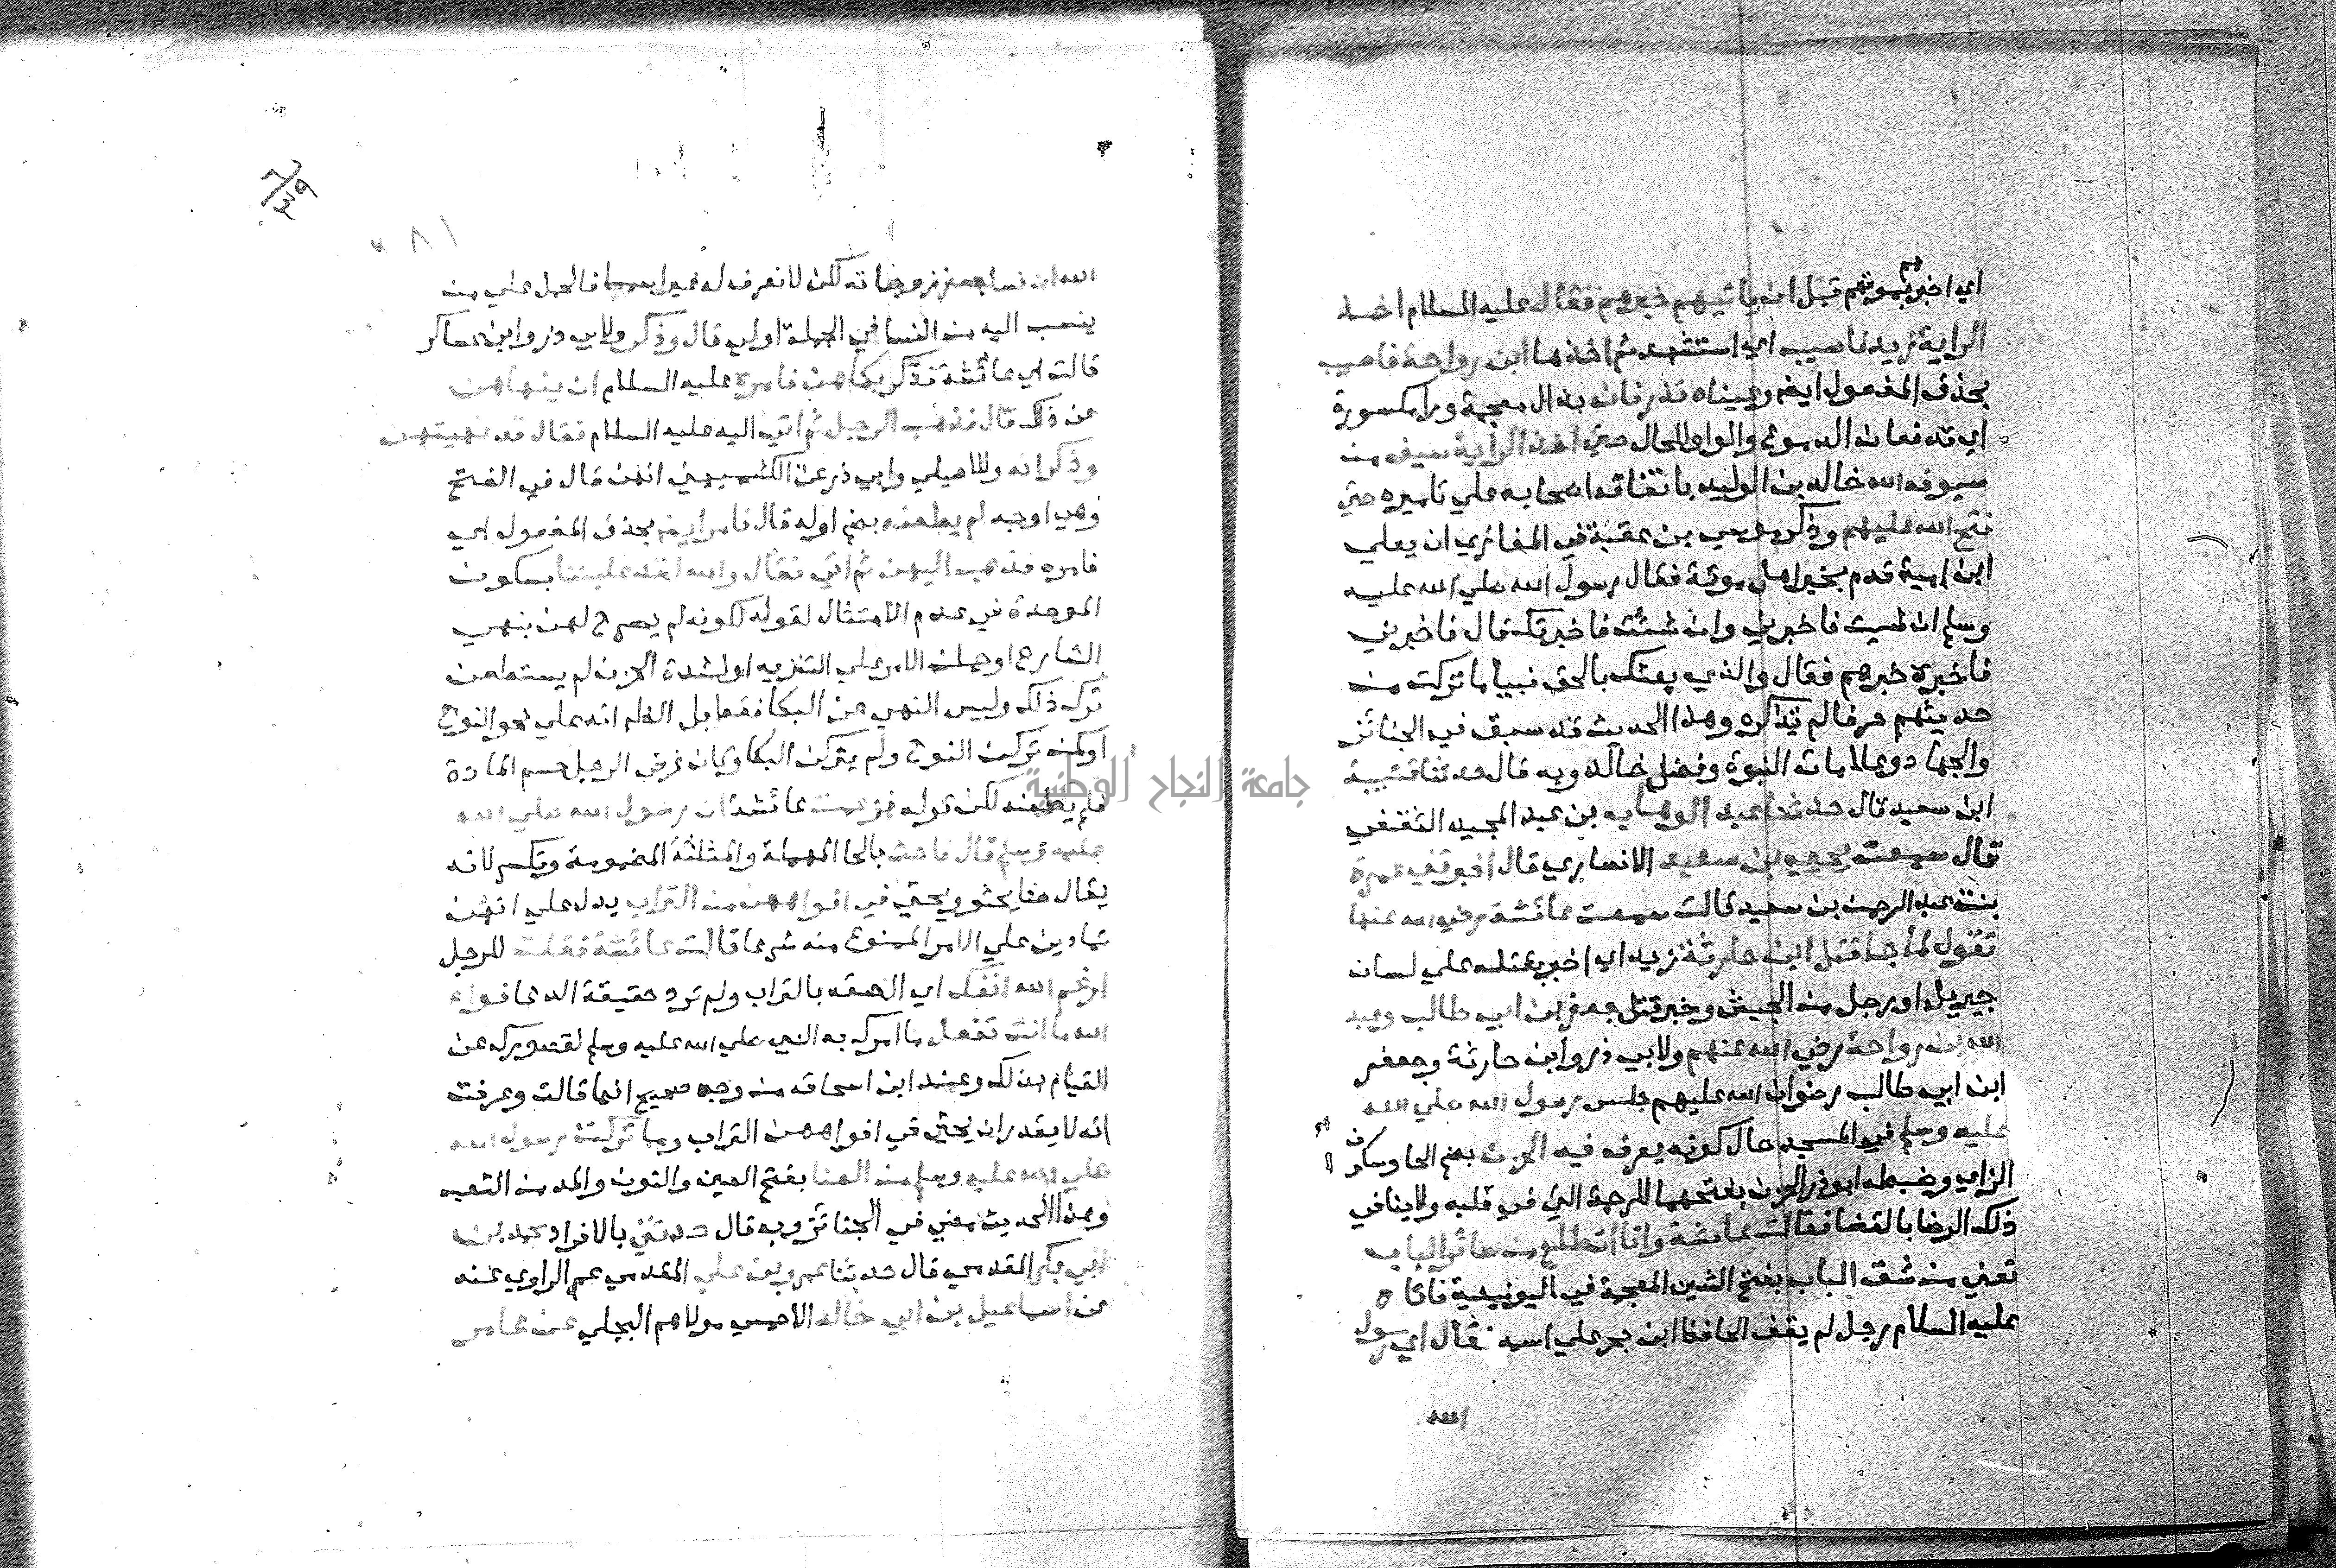 اي اخبر بموتهم قبل ان ياتيهم خبرهم فقال عليه السلام اخذ
الراية زيد فاصيب اي استشهد ثم اخذها ابن رواحة فاصيب
بحذف المفعول ايضا وعيناه تذرفان بذال معجمة ورا مكسورة
اي تدفعان الدموع والواو للحال حتي اخذ الراية سيف من
سيوف الله خالد بن الوليد باتفاق اصحابه علي تاميره حتي
فتح الله عليهم وذكر موسي بن عقبة في المغازي ان يعلي
ابن امية قدم بخبر اهل موتة فقال رسول الله صلي الله عليه
وسلم ان شيت فاخبرني وان شئت فاخبرتك قال فاخبرني
فاخبره خبرهم فقال والذي بعثك بالحق نبيا ما تركت من
حديثهم حرفا لم تذكره وهذا الحديث قد سبق في الجنائز
والجهاد وعلامات النبوة وفضل خالد وبه قال حدثنا قتيبة
ابن سعيد قال حدثنا عبد الوهاب بن عبد المجيد الثقفي
قال سمعت يحيي بن سعيد الانصاري قال اخبرتني عمرة
بنت عبد الرحمن بن سعيد قالت سمعت عائشة رضي الله عنها
تقول لما جا قتل ابن حارثة زيد اي اخبر بقتله علي لسان
جبريل او رجل من الجيش وخبر قتل جعفر بن ابي طالب وعبد
الله بن رواحة رضي الله عنهم ولابي ذر وابن حارثة وجعفر
ابن ابي طالب رضوان الله عليهم جلس رسول الله صلي الله
عليه وسلم في المسجد حال كونه يعرف فيه الحزن بضم الحا وسكون
الزاي وضبطه ابو ذر الحزن بفتحهما للرحمة التي في قلبه ولا ينافي
ذلك الرضا بالقضا فقالت عائشة وانا اطلع من صائر الباب
تعني من شق الباب بفتح الشين المعجمة في اليونينية فاتاه
عليه السلام رجل لم يقف الحافظ ابن حجر علي اسمه فقال اي رسول
الله
٨١
الله ان نسا جعفر زوجاته لكن لا نعرف له غير اسما فالحمل علي من
ينسب اليه من النسا في الجملة اولي قال وذكر ولابي ذر وابن عساكر
قالت اي عائشة فذكر بكاهن فامره عليه السلام ان ينهاهن
عن ذلك قال فذهب الرجل ثم اتي اليه عليه السلام فقال قد نهيتهن
وذكر انه وللاصيلي وابي ذر عن الكشميهني انهن قال في الفتح
وهي اوجه لم يطعنه بضم اوله قال فامر ايضا بحذف المفعول اي
فامره فذهب اليهن ثم اتي فقال والله لقد غلبننا بسكون
الموحدة في عدم الامتثال لقوله لكونه لم يصرح لهن بنهي
الشارع او حملن الامر علي التنزيه او لشدة الحزن لم يستطعن
ترك ذلك وليس النهي عن البكا فقط بل الظاهر انه علي نحو النوح
او كن تركن النوح ولم يتركن البكا وكان غرض الرجل حسم المادة
فلم يطعنه لكن قوله فزعمت عائشة ان رسول الله صلي الله
عليه وسلم قال فاحث بالحا المهملة والمثلثة المضمومة وتكسر لانه
يقال حثا يحثو ويحثي في افواههن من التراب يدل علي انهن
تمادين علي الامر الممنوع منه شرعا قالت عائشة فقلت للرجل
ارغم الله انفك اي الصقه بالتراب ولم ترد حقيقة الدعا فوا
الله ما انت تفعل ما امرك به النبي صلي الله عليه وسلم لقصورك عن
القيام بذلك وعند ابن اسحاق من وجه صحيح انها قالت وعرفت
انه لا يقدر ان يحثي في افواههن التراب وما تركت رسول الله
صلي الله عليه وسلم من العنا بفتح العين والنون والمد من التعب
وهذا الحديث مضي في الجنائز وبه قال حدثني بالافراد محمد بن
ابي بكر المقدمي قال حدثنا عمرو بن علي المقدمي عم الراوي عنه
عن اسماعيل بن ابي خالد الاحمسي مولاهم البجلي عن عامر
جامعة النجاح الوطنية